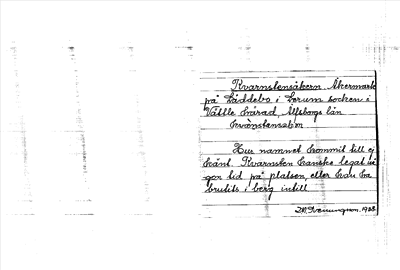 Kvarnstensåkern. Åkermark
på Läddebo i Lerum socken i
Vättle härad, Älfsborgs län
kvarnstensskär
Hur namnet kommit till ej
känt. Kvarnsten kanske legat nå
gon tid på platsen, eller kan ha
brutits i berg intill
1928